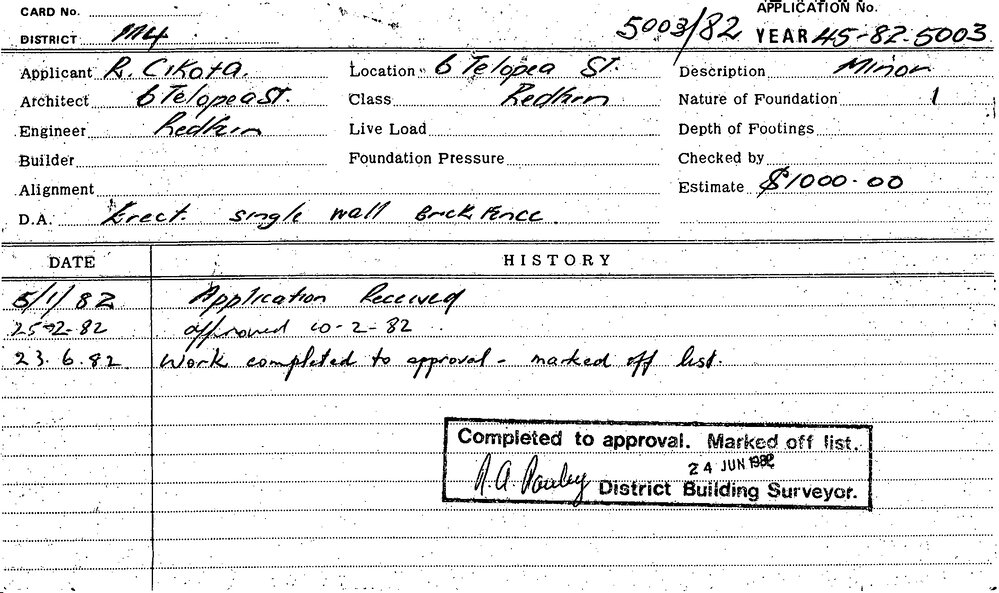 CARD No.
APPLICATION No.
DISTRICT M4
5003/82 YEAR 45-82-5003
Applicant R. Cikota. Location 6 Telopea St. Description Minor
Architect 6 Telopea St. Class Redhead Nature of Foundation 1
Engineer Live Load Depth of Footings
Builder Foundation Pressure Checked by
Alignment Estimate $1000.00
D.A. Erect single wall Brick Fence
DATE HISTORY
5/1/82 Application Received
25-2-82 approved 10-2-82
23.6.82 Work completed to approval - marked off list.
Completed to approval. Marked off list.
24 JUN 1982
District Building Surveyor.